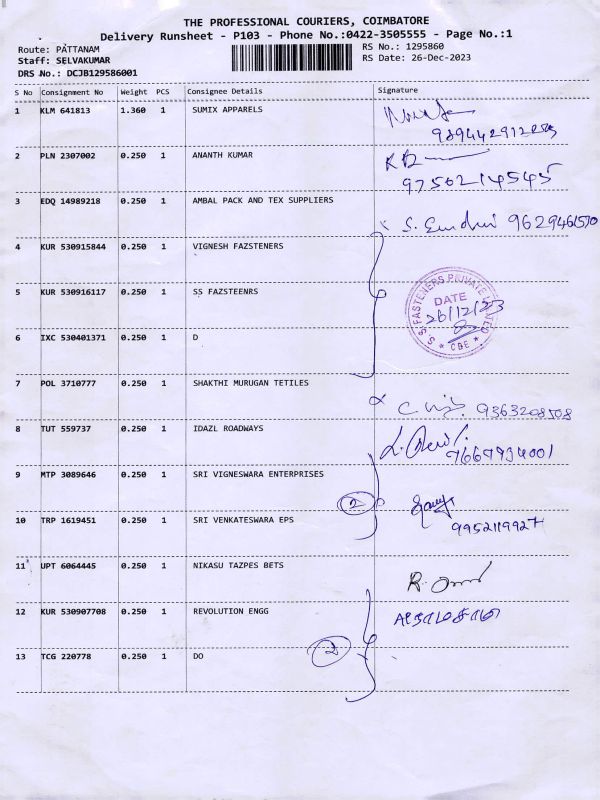 THE PROFESSIONAL COURIERS, COIMBATORE
Delivery Runsheet - P103 - Phone No.:0422-3505555 - Page No.:1
Route: PATTANAM
RS No.: 1295860
Staff: SELVAKUMAR
RS Date: 26-Dec-2023
DRS No.: DCJB129586001
S No Consignment No Weight PCS Consignee Details Signature
1 KLM 641813 1.360 1 SUMIX APPARELS
2 PLN 2307002 0.250 1 ANANTH KUMAR
9750214545
3 EDQ 14989218 0.250 1 AMBAL PACK AND TEX SUPPLIERS
9629461570
4 KUR 530915844 0.250 1 VIGNESH FAZSTENERS
5 KUR 530916117 0.250 1 SS FAZSTEENRS
S.S. FASTENERS PRIVATE LIMITED
DATE
26/12/23
* CBE *
6 IXC 530401371 0.250 1 D
7 POL 3710777 0.250 1 SHAKTHI MURUGAN TETILES
9363208508
8 TUT 559737 0.250 1 IDAZL ROADWAYS
7667934001
9 MTP 3089646 0.250 1 SRI VIGNESWARA ENTERPRISES
2
10 TRP 1619451 0.250 1 SRI VENKATESWARA EPS
9952119927
11 UPT 6064445 0.250 1 NIKASU TAZPES BETS
12 KUR 530907708 0.250 1 REVOLUTION ENGG
2
13 TCG 220778 0.250 1 DO